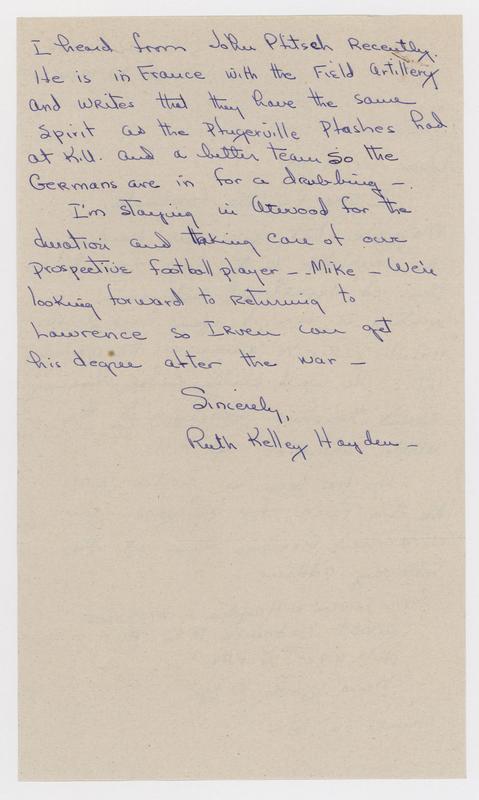 I heard from John Pfitsch Recently.
He is in France with the Field Artillery
and writes that they have the same
spirit as the Pflugerville Pflashes had
at K.U. and a better team so the
Germans are in for a drubbing —.
I'm staying in Atwood for the
duration and taking care of our
prospective football player — Mike — We're
looking forward to returning to
Lawrence so Irven can get
his degree after the war —
Sincerely,
Ruth Kelley Hayden —